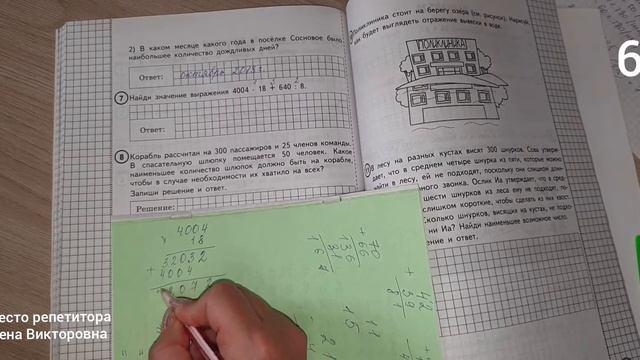 2) В каком месяце какого года в посёлке Сосновое было
наибольшее количество дождливых дней?
Ответ: октябрь 2008 г.
7 Найди значение выражения 4004 · 18 + 640 : 8.
Ответ:
8 Корабль рассчитан на 300 пассажиров и 25 членов команды.
В спасательную шлюпку помещается 50 человек. Какое
наименьшее количество шлюпок должно быть на корабле,
чтобы в случае необходимости их хватило на всех?
Запиши решение и ответ.
Решение:
Поликлиника стоит на берегу озера (см. рисунок). Нарисуй,
как будет выглядеть отражение вывески в воде.
ПОЛИКЛИНИКА
В лесу на разных кустах висят 300 шнурков. Сова утверж-
дает, что в среднем четыре шнурка из пяти, которые можно
найти в лесу, ей не подходят, поскольку они слишком длин-
звонка. Ослик Иа утверждает, что в сред-
шести шнурков из леса ему не подходят,
слишком короткие, чтобы сделать из них хвост.
Сколько шнурков, висящих на кустах, не подхо-
ни Иа? Найди наименьшее возможное число.
и ответ.
4004
18
32032
+ 4004
072
70
+ 66
136
42
+ 39
81
15
6
есто репетитора
ена Викторовна